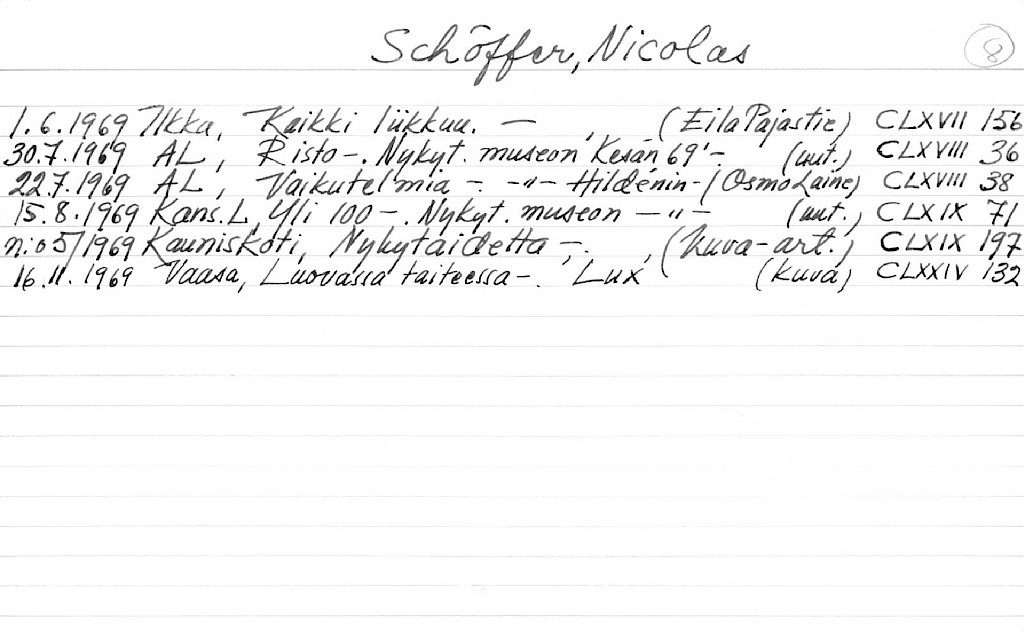 Schöffer, Nicolas 8
1.6.1969 Ilkka, Kaikki liikkuu. — , (Eila Pajastie) CLXVII 156
30.7.1969 AL, Risto-. Nykyt. museon Kesän 69'-. (uut.) CLXVIII 36
22.7.1969 AL, Vaikutelmia -. -"- Hildénin-(Osmo Laine) CLXVIII 38
15.8.1969 Kans.L, Yli 100-. Nykyt. museon -"- (uut.) CLXIX 71
n:o 5/1969 Kauniskoti, Nykytaidetta -. , (kuva-art.) CLXIX 197
16.11.1969 Vaasa, Luovassa taiteessa-. Lux (kuva) CLXXIV 132